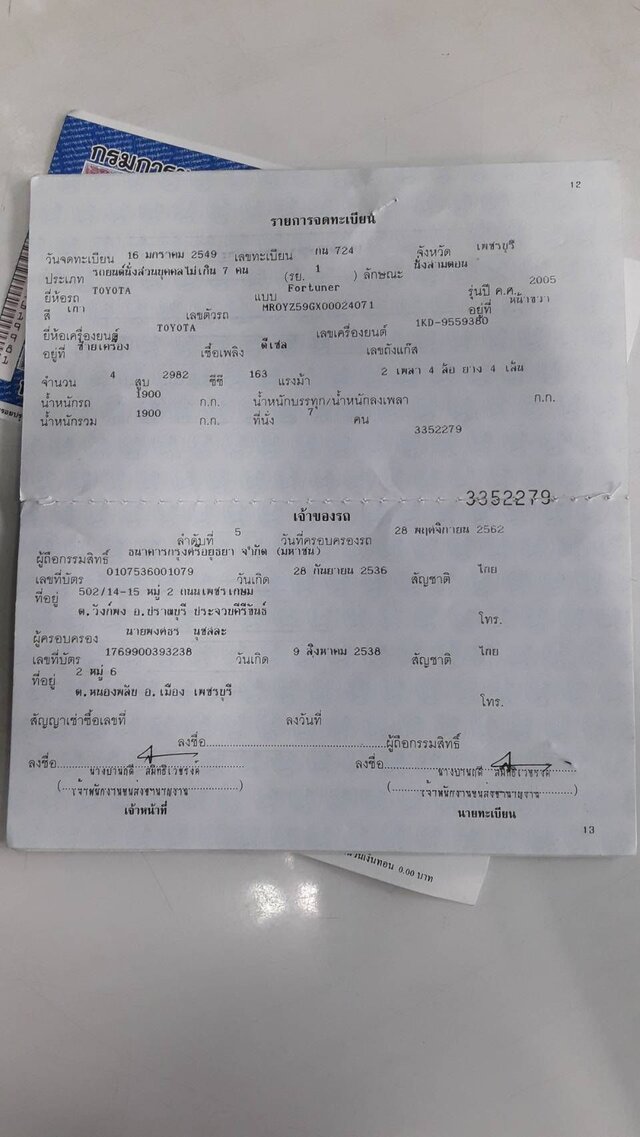 กรมการ
12
รายการจดทะเบียน
วันจดทะเบียน 16 มกราคม 2549 เลขทะเบียน กน 724 จังหวัด เพชรบุรี
ประเภท รถยนต์นั่งส่วนบุคคลไม่เกิน 7 คน (รย. 1 ) ลักษณะ นั่งสามตอน
ยี่ห้อรถ TOYOTA แบบ Fortuner รุ่นปี ค.ศ. 2005
สี เทา เลขตัวรถ MROYZ59GX00024071 อยู่ที่ หน้าขวา
ยี่ห้อเครื่องยนต์ TOYOTA เลขเครื่องยนต์ 1KD-9559380
อยู่ที่ ซ้ายเครื่อง เชื้อเพลิง ดีเซล เลขถังแก๊ส
จำนวน 4 สูบ 2982 ซีซี 163 แรงม้า 2 เพลา 4 ล้อ ยาง 4 เส้น
น้ำหนักรถ 1900 ก.ก. น้ำหนักบรรทุก/น้ำหนักลงเพลา ก.ก.
น้ำหนักรวม 1900 ก.ก. ที่นั่ง 7 คน
3352279
3352279
เจ้าของรถ
ลำดับที่ 5 วันที่ครอบครองรถ 28 พฤศจิกายน 2562
ผู้ถือกรรมสิทธิ์ ธนาคารกรุงศรีอยุธยา จำกัด (มหาชน)
เลขที่บัตร 0107536001079 วันเกิด 28 กันยายน 2536 สัญชาติ ไทย
ที่อยู่ 502/14-15 หมู่ 2 ถนนเพชรเกษม
ต.วังก์พง อ.ปราณบุรี ประจวบคีรีขันธ์
โทร.
ผู้ครอบครอง นายพงศธร นุชสละ
เลขที่บัตร 1769900393238 วันเกิด 9 สิงหาคม 2538 สัญชาติ ไทย
ที่อยู่ 2 หมู่ 6
ต.หนองพลับ อ.เมือง เพชรบุรี
โทร.
สัญญาเช่าซื้อเลขที่ ลงวันที่
ลงชื่อ ผู้ถือกรรมสิทธิ์
ลงชื่อ ลงชื่อ
เจ้าพนักงานขนส่งชำนาญงาน เจ้าพนักงานขนส่งชำนาญงาน
เจ้าหน้าที่ นายทะเบียน
13
เงินทอน 0.00 บาท